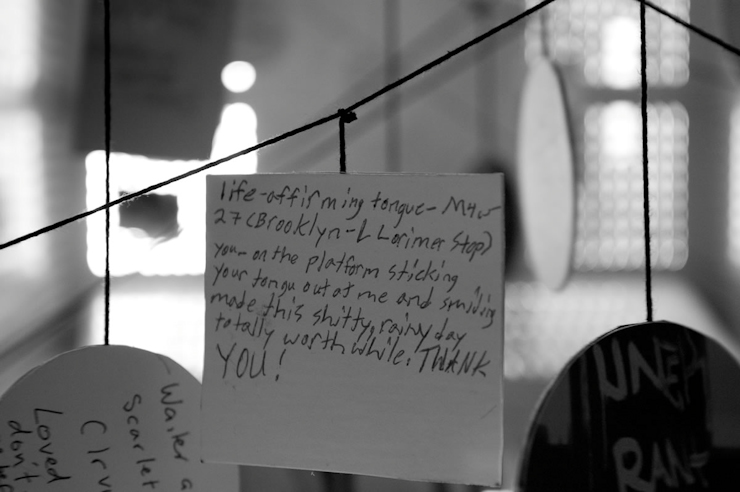 life-affirming tongue - M4w
27 (Brooklyn - L Lorimer Stop)
you - on the platform sticking
your tongu out at me and smiling
made this shitty, rainy day
totally worthwhile. THANK
YOU!
Waiter a
Scarlet
Loved
don't
UNEH
RAN